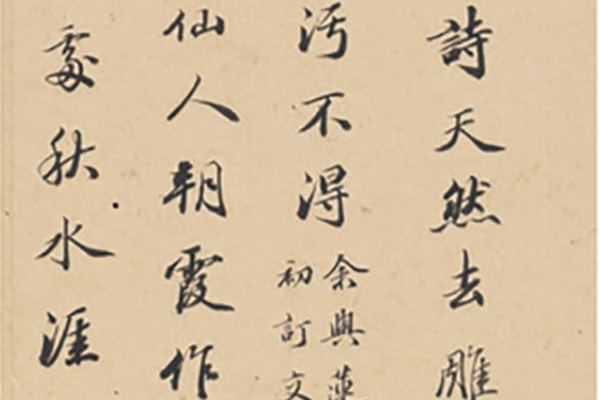 詩天然去雕
汚不得
余與蓮
初訂文
仙人朝霞作
處秋水涯